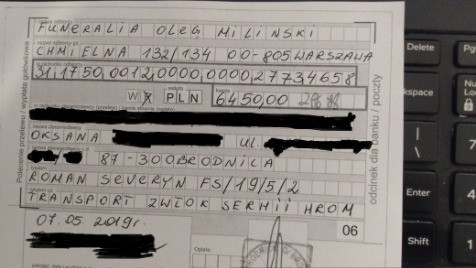 FUNERALIA OLEG MILINSKI
CHMIELNA 132/134 00-805 WARSZAWA
31 1750 0012 0000 0000 2773 4658
W X PLN 6450,00
OKSANA ul.
87-300 BRODNICA
ROMAN SEVERYN FS/19/5/2
TRANSPORT ZWŁOK SERHII HROM
06
07.05.2019r.
Opłata:
Polecenie przelewu / wpłata gotówkowa
odcinek dla banku / poczty
Delete
Enter
Shift